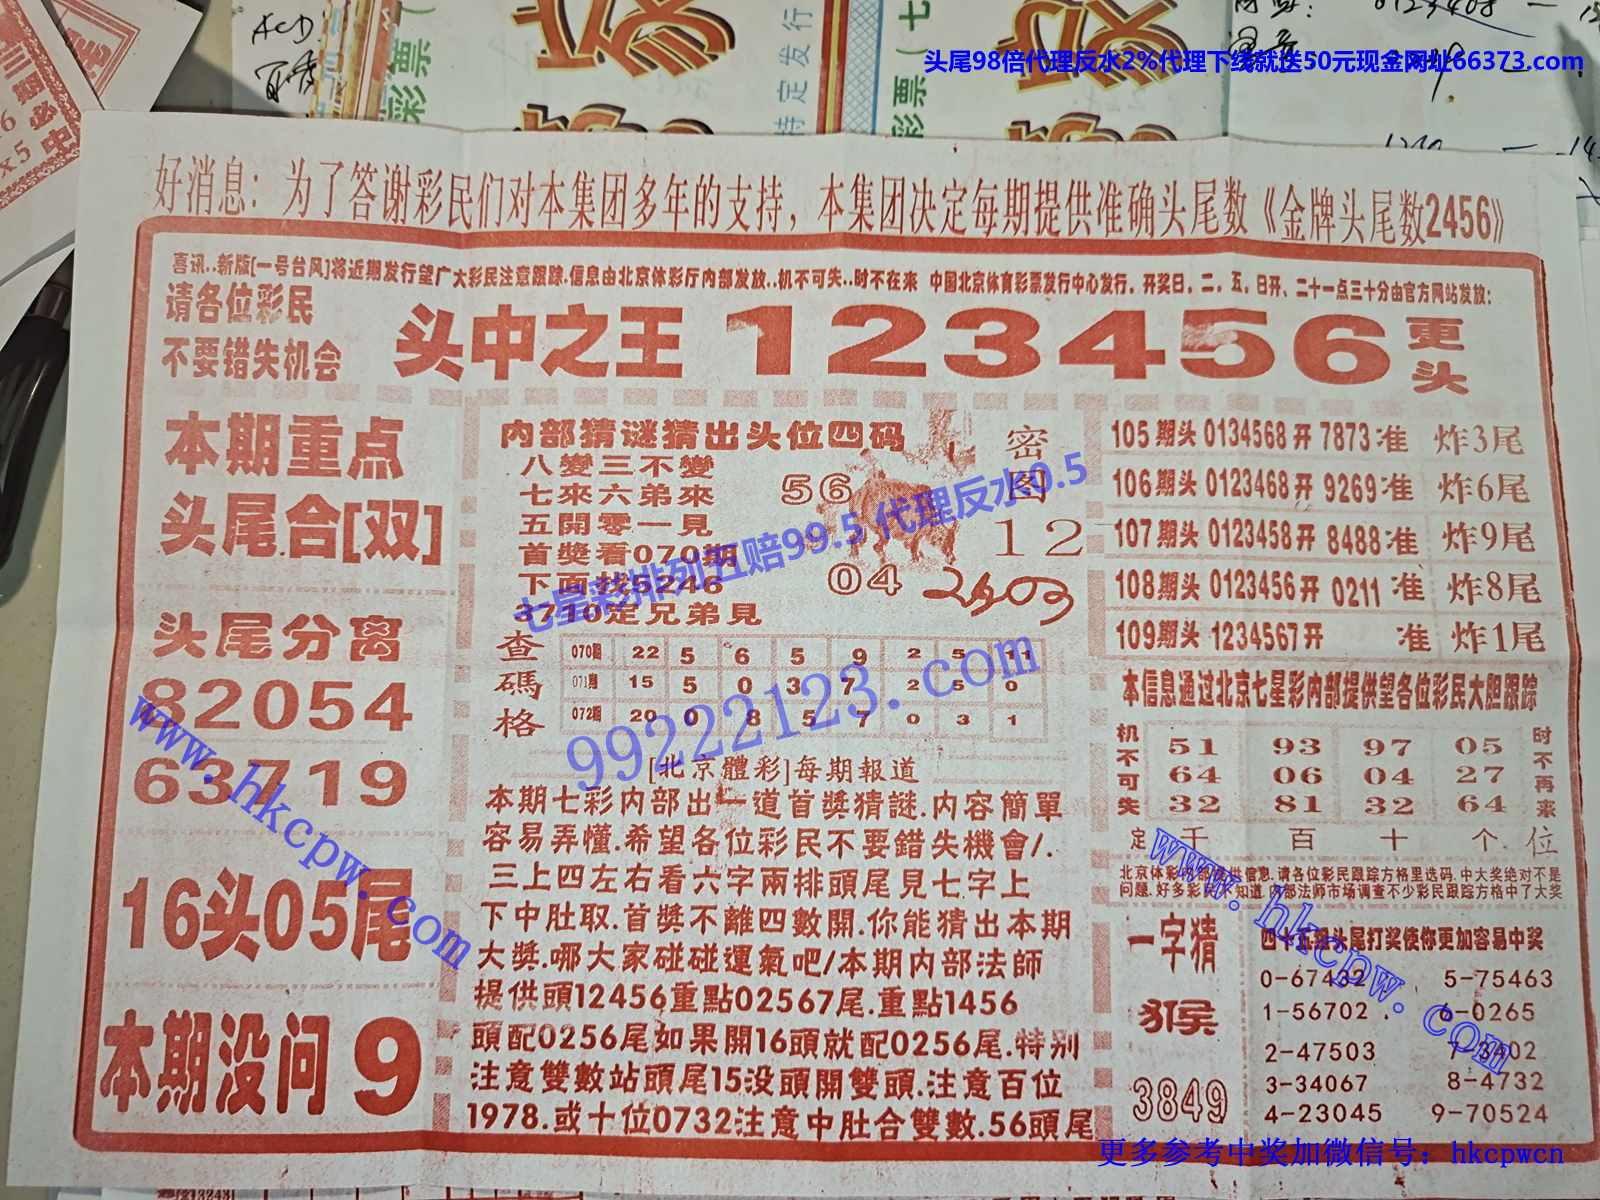 头尾98倍代理反水2%代理下线就送50元现金网址66373.com
好消息：为了答谢彩民们对本集团多年的支持，本集团决定每期提供准确头尾数《金牌头尾数2456》
喜讯..新版[一号台风]将近期发行望广大彩民注意跟踪.信息由北京体彩厅内部发放..机不可失..时不在来 中国北京体育彩票发行中心发行，开奖日，二，五，日开、二十一点三十分由官方网站发放：
请各位彩民
不要错失机会
头中之王 123456 更头
本期重点
头尾合[双]
头尾分离
82054
63719
16头05尾
本期没问 9
内部猜谜猜出头位四码
八變三不變
七來六弟來
五開零一見
首獎看070期
下面找5246
3710定兄弟見
56
04
密图
12
2503
七星彩排列五赔99.5 代理反水0.5
查碼格
070期 22 5 6 5 9 2 5 11
071期 15 5 0 3 7 2 5 0
072期 20 0 8 5 7 0 3 1
99222123.com
[北京體彩]每期報道
本期七彩内部出一道首獎猜謎.内容簡單
容易弄懂.希望各位彩民不要錯失機會/.
三上四左右看六字兩排頭尾見七字上
下中肚取.首獎不離四數開.你能猜出本期
大獎.哪大家碰碰運氣吧/本期内部法師
提供頭12456重點02567尾.重點1456
頭配0256尾如果開16頭就配0256尾.特别
注意雙數站頭尾15没頭開雙頭.注意百位
1978.或十位0732注意中肚合雙數.56頭尾
105期头 0134568开 7873准 炸3尾
106期头 0123468开 9269准 炸6尾
107期头 0123458开 8488准 炸9尾
108期头 0123456开 0211准 炸8尾
109期头 1234567开 准 炸1尾
本信息通过北京七星彩内部提供望各位彩民大胆跟踪
机不可失
51 93 97 05
64 06 04 27
32 81 32 64
时不再来
定 千 百 十 个 位
北京体彩内部提供信息.请各位彩民跟踪方格里选码.中大奖绝对不是
问题.好多彩民不知道.内部法师市场调查不少彩民跟踪方格中了大奖
一字猜
猴
3849
四十五组头尾打奖使你更加容易中奖
0-67432 5-75463
1-56702 6-0265
2-47503
3-34067 8-4732
4-23045 9-70524
www.hkcpw.com
www.hkcpw.com
更多参考中奖加微信号：hkcpwcn